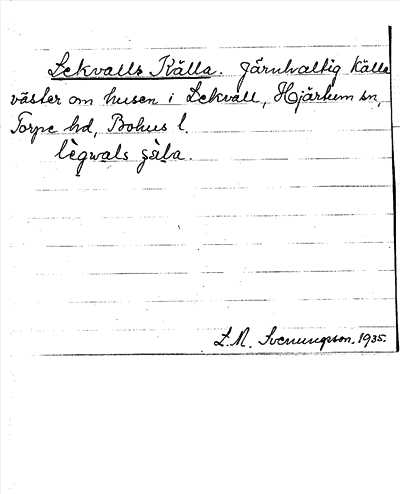 Lekvalls Källa. Järnhaltig källa
väster om husen i Lekvall, Hjärtum sn,
Torpe hd, Bohus l.
lègwals çàla.
L. M. Svenungsson. 1935.